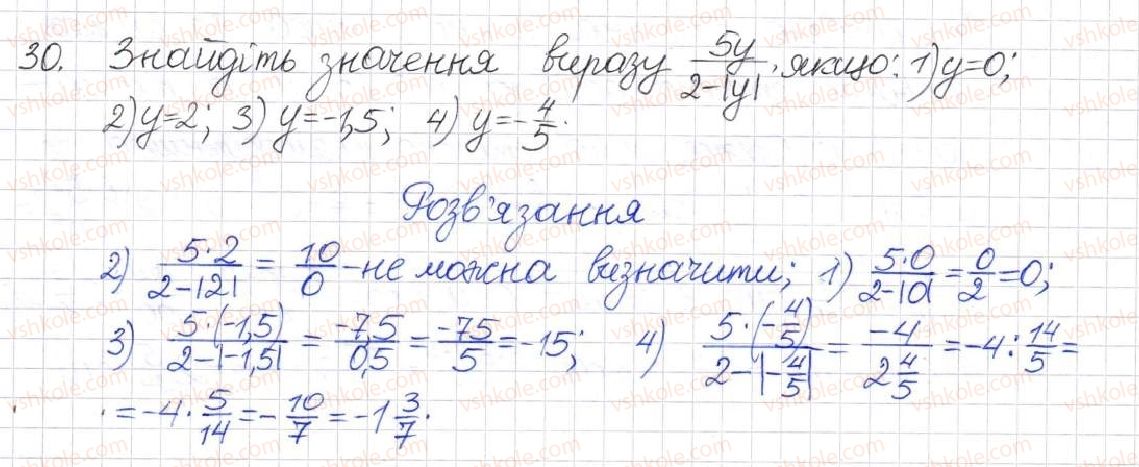 30. Знайдіть значення виразу 5y/(2-|y|), якщо: 1) y=0;
2) y=2; 3) y=-1,5; 4) y=-4/5.
Розв'язання
2) (5·2)/(2-|2|) = 10/0 - не можна визначити; 1) (5·0)/(2-|0|) = 0/2 = 0;
3) (5·(-1,5))/(2-|-1,5|) = -7,5/0,5 = -75/5 = -15; 4) (5·(-4/5))/(2-|-4/5|) = -4/(2 4/5) = -4 : 14/5 =
= -4 · 5/14 = -10/7 = -1 3/7.